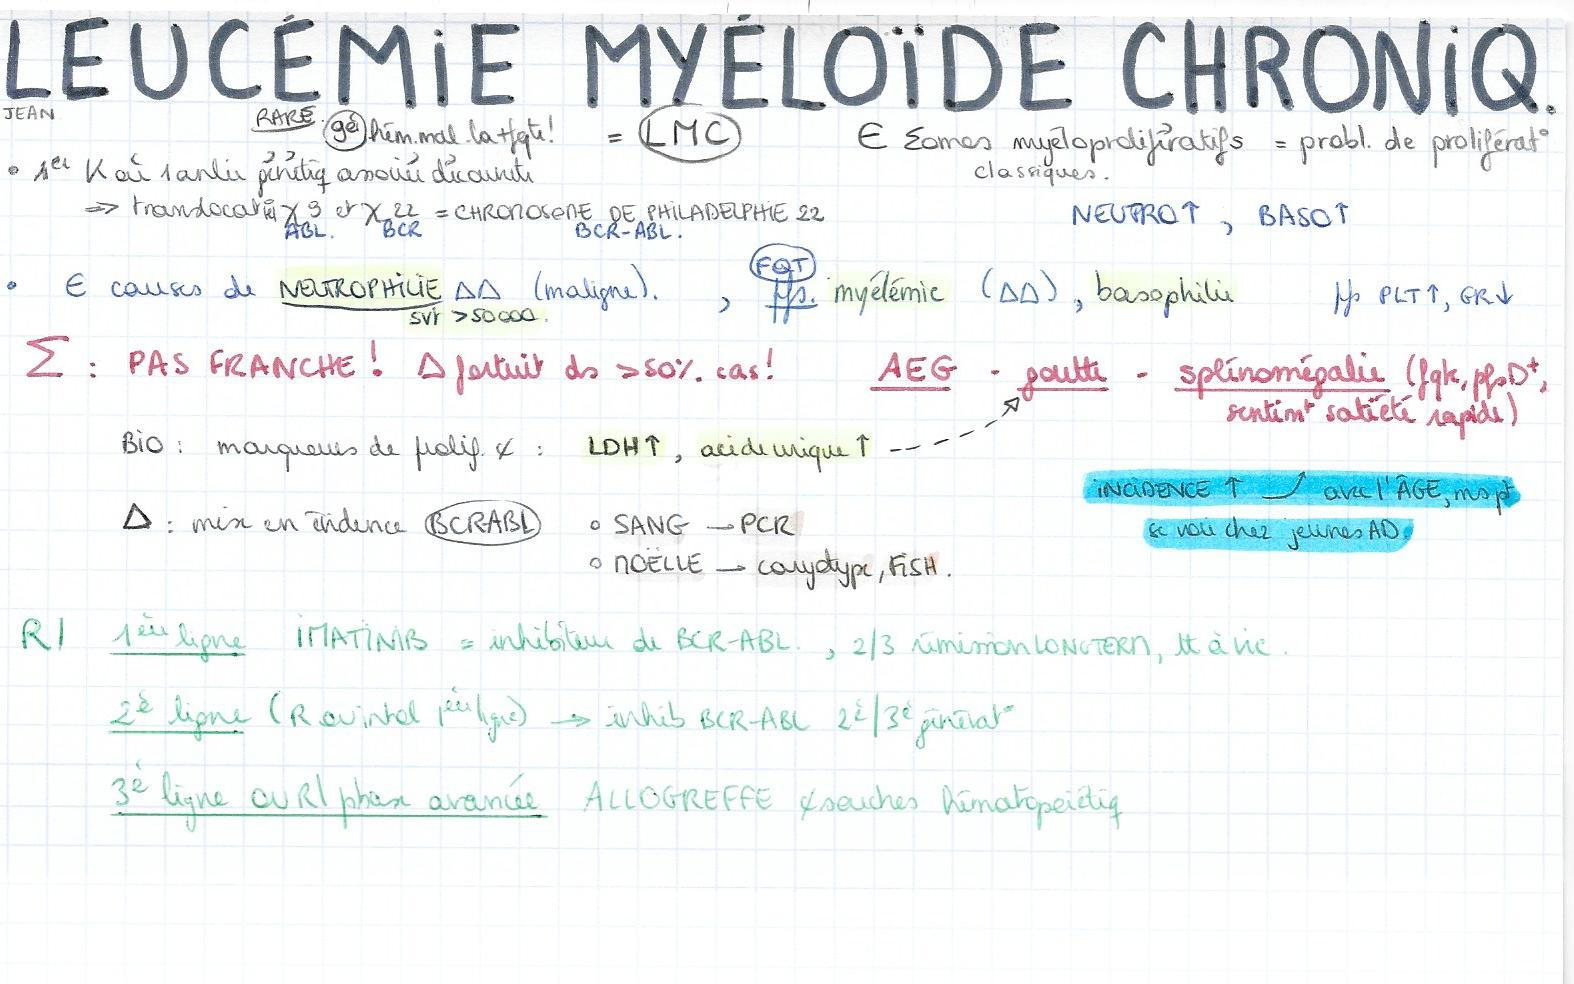 LEUCÉMIE MYÉLOÏDE CHRONIQ.
JEAN
RARE. gé hém. mal. la + fqte! = LMC
∈ Σomes myéloprolifératifs = probl. de proliférat°
classiques.
• 1er K où 1 anlie génétiq associée découverte
⇒ translocat° χ 9 et χ 22 = CHROMOSOME DE PHILADELPHIE 22
ABL. BCR BCR-ABL.
NEUTRO↑, BASO↑
• ∈ causes de NEUTROPHILIE ΔΔ (maligne)., FQT pfs. myélémie (ΔΔ), basophilie pfs PLT↑, GR↓
svt >50000.
Σ : PAS FRANCHE! Δ fortuit ds >50% cas! AEG - goutte - splénomégalie (fqte, pfs D+,
sentimt satiété rapide)
BIO : marqueurs de prolif. ¢ : LDH↑, acide urique ↑
INCIDENCE ↑ avec l'ÂGE, ms pt
se voir chez jeunes AD.
Δ : mise en évidence BCRABL ◦ SANG → PCR
◦ MOËLLE → caryotype, FISH.
R/ 1ère ligne IMATINIB = inhibiteur de BCR-ABL., 2/3 rémission LONG TERM, tt à vie.
2è ligne (R ou intol 1ère ligne) → inhib BCR-ABL 2è/3è générat°
3è ligne ou R/ phase avancée ALLOGREFFE ¢ souches hématopoiétiq